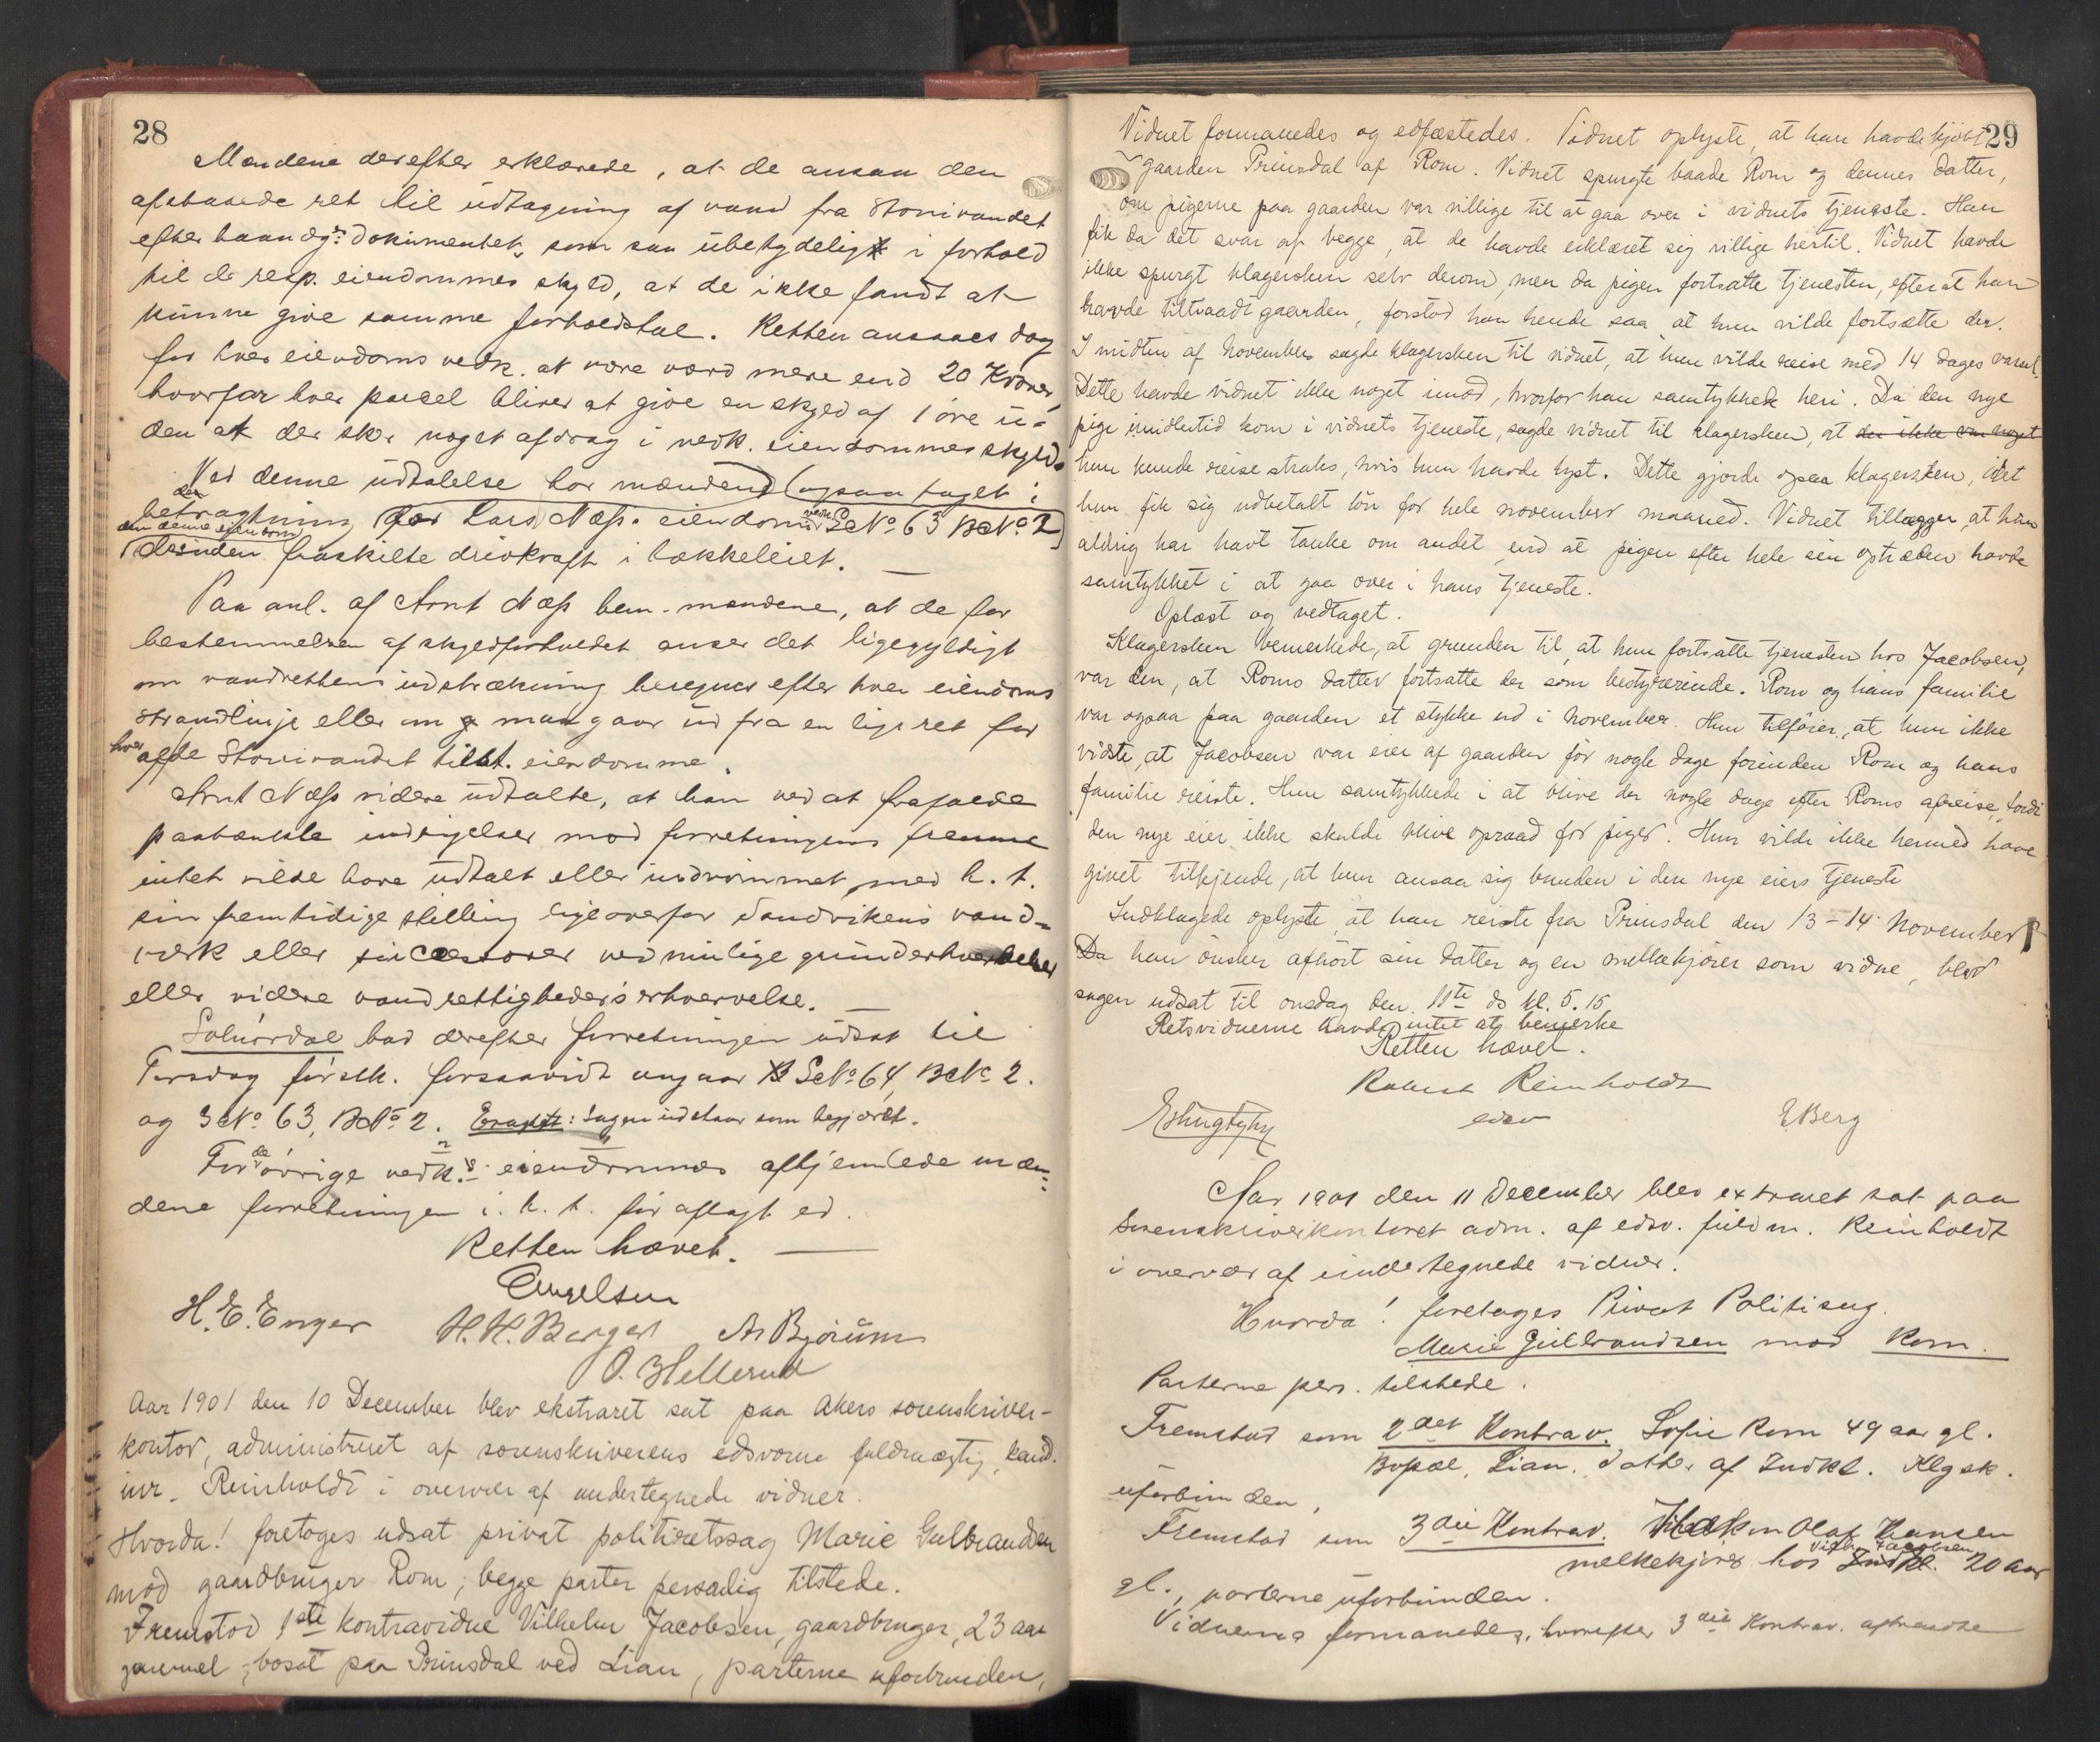 28
Mændene derefter erklærede, at de ansaa den
afstaaede ret til udtagning af vand fra Storvandet
efter haandg. dokumenter, som saa ubetydeligt i forhold
til de resp. eiendommes skyld, at de ikke fandt at
kunne give samme forholdstal. Retten ansaaes dog
for hver eiendoms vedk. at være værd mere end 20 Kroner,
hvorfor hver parcel bliver at give en skyld af 1 øre u-
den at der sker noget afdrag i vedk. eiendommes skyld.
Ved denne udtalelse har mændene (ogsaa taget i
betragtning den for Lars Næss. eiendom SeNo 63 BNo 2
den denne eiendom
fraskilte drivkraft i bækkeleiet.
Paa anl. af Arnt Næss bem. mændene, at de for
bestemmelsen af skyldforholdet anser det ligegyldigt
om vandrettens udstrækning beregnes efter hver eiendoms
strandlinje eller om man gaar ud fra en lige ret for
hver af de Storvandet tilst. eiendomme.
Arnt Næss videre udtalte, at han ved at frafalde
paatænkte indsigelser mod forretningens fremme
intet vilde have udtalt eller indrømmet med h. t.
sin fremtidige stilling ligeoverfor Sandvikens vand-
værk eller successorer ved mulige grunderhvervelser
eller videre vandrettigheders erhvervelse.
Solnørdal bad derefter forretningen udsat til
Torsdag førstk. forsaavidt angaar SeNo 64 BNo 2.
og SeNo 63, BNo 2. Eragtet: Sagen udstaar som begjæret.
For de øvrige vedk. eiendommes afhjemlede mæn-
dene forretningen i. h. t. før aflagt ed.
Retten hævet.
Engelsen
H. E. Enger H. H. Berger A. Bjørum
O. Hellerud
Aar 1901 den 10 December blev ekstraret sat paa Akers sorenskriver-
kontor, administreret af sorenskriverens edsvorne fuldmægtig, kand.
jur. Reinholdt i overvær af undertegnede vidner.
Hvorda! foretoges udsat privat politiretssag Marie Gulbrandsen
mod gaardbruger Rom; begge parter personlig tilstede.
Fremstod 1ste kontravidne Vilhelm Jacobsen, gaardbruger, 23 aar
gammel, bosat paa Prinsdal ved Lian, parterne uforbunden,
29
Vidnet formanedes og edfæstedes. Vidnet oplyste, at han havde kjøbt
gaarden Prinsdal af Rom. Vidnet spurgte baade Rom og dennes datter,
om pigerne paa gaarden var villige til at gaa over i vidnets tjeneste. Han
fik da det svar af begge, at de havde erklæret sig villige hertil. Vidnet havde
ikke spurgt klagersken selv derom, men da pigen fortsatte tjenesten, efterat han
havde tiltraadt gaarden, forstod han hende saa, at hun vilde fortsætte der.
I midten af november sagde klagersken til vidnet, at hun vilde reise med 14 dages varsel.
Dette havde vidnet ikke noget imod, hvorfor han samtykkede heri. Da den nye
pige imidlertid kom i vidnets tjeneste, sagde vidnet til klagersken, at der ikke var noget
hun kunde reise straks, hvis hun havde lyst. Dette gjorde ogsaa klagersken, idet
hun fik sig udbetalt løn for hele november maaned. Vidnet tillægger, at han
aldrig har havt tanke om andet, end at pigen efter hele sin optræden havde
samtykket i at gaa over i hans tjeneste.
Oplæst og vedtaget.
Klagersken bemerkede, at grunden til, at hun fortsatte tjenesten hos Jacobsen,
var den, at Roms datter fortsatte der som bestyrerinde. Rom og hans familie
var ogsaa paa gaarden et stykke ud i november. Hun tilføier, at hun ikke
vidste, at Jacobsen var eier af gaarden før nogle dage forinden Rom og hans
familie reiste. Hun samtykkede i at blive der nogle dage efter Roms afreise, fordi
den nye eier ikke skulde blive opraad for piger. Hun vilde ikke hermed have
givet tilkjende, at hun ansaa sig bunden i den nye eiers tjeneste
Indklagede oplyste, at han reiste fra Prinsdal den 13-14 November
Da han ønsker afhørt sin datter og en melkekjører som vidne, blev
sagen udsat til onsdag den 11te ds kl. 5.15
Retsvidnerne havde intet at bemerke
Retten hævet.
Robert Reinholdt
edsv
E Berg
Aar 1901 den 11 December blev extraret sat paa
Sorenskriverkontoret adm. af edsv. fuldm. Reinholdt
i overvær af undertegnede vidner.
Hvorda! foretoges Privat Politisag.
Marie Gulbrandsen mod Rom.
Parterne pers. tilstede.
Fremstod som 2det Kontrav. Sofie Rom 49 aar gl.
Bopæl, Lian. datter af Indkl. Klgsk.
uforbunden,
Fremstod som 3die Kontrav. Haakon Olaf Hansen
melkekjører hos Vilh. Jacobsen Indkl. 20 aar
gl., parterne uforbunden.
Vidnerne formanedes, hvorefter 3die Kontrav. aftraadte